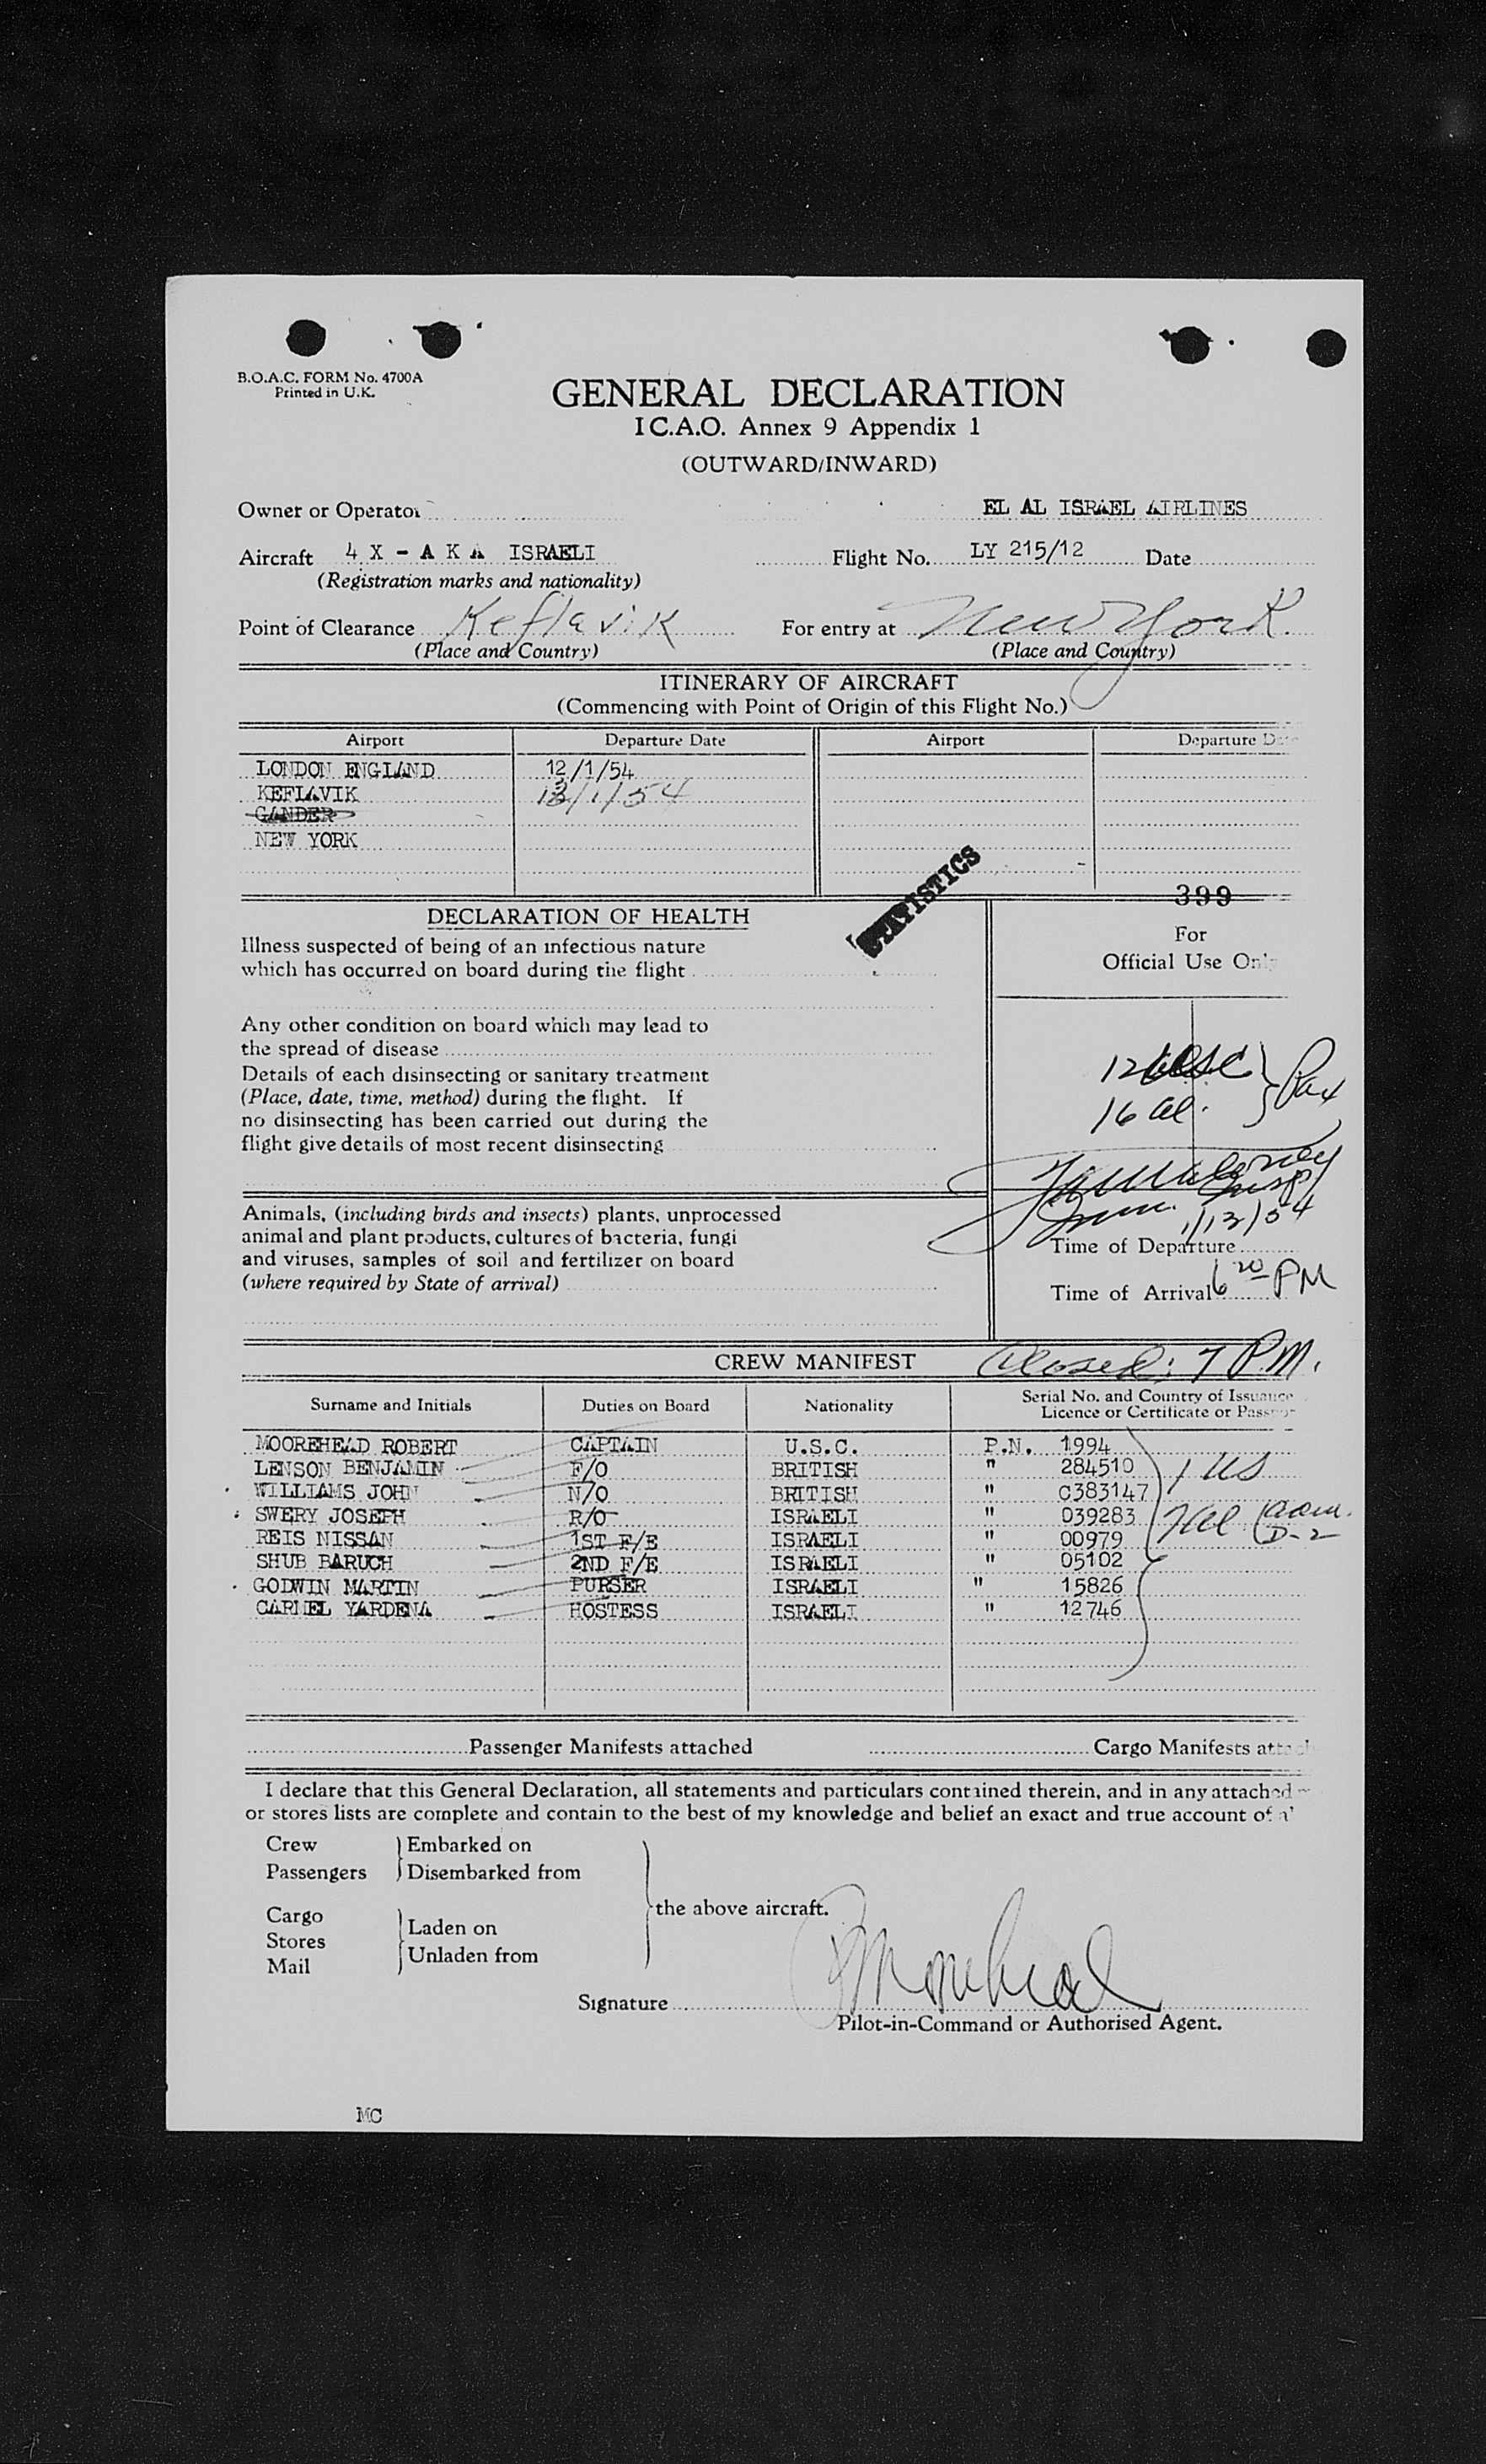 B.O.A.C. FORM No. 4700A
Printed in U.K.
GENERAL DECLARATION
I C.A.O. Annex 9 Appendix 1
(OUTWARD/INWARD)
Owner or Operator EL AL ISRAEL AIRLINES
Aircraft 4 X - A K A ISRAELI Flight No. LY 215/12 Date
(Registration marks and nationality)
Point of Clearance Keflavik For entry at New York
(Place and Country) (Place and Country)
ITINERARY OF AIRCRAFT
(Commencing with Point of Origin of this Flight No.)
Airport Departure Date Airport Departure
LONDON ENGLAND 12/1/54
KEFLAVIK 12/1/54
GANDER
NEW YORK
STATISTICS
399
DECLARATION OF HEALTH
Illness suspected of being of an infectious nature
which has occurred on board during the flight
For
Official Use Only
Any other condition on board which may lead to
the spread of disease
Details of each disinsecting or sanitary treatment
(Place, date, time, method) during the flight. If
no disinsecting has been carried out during the
flight give details of most recent disinsecting
12 USC
16 al. Pax
Insp
Imm. 1/12/54
Animals, (including birds and insects) plants, unprocessed
animal and plant products, cultures of bacteria, fungi
and viruses, samples of soil and fertilizer on board
(where required by State of arrival)
Time of Departure
Time of Arrival 6 20 PM
CREW MANIFEST Closed: 7 P.M.
Surname and Initials Duties on Board Nationality Serial No. and Country of Issuance
Licence or Certificate or Passpor
MOOREHEAD ROBERT CAPTAIN U.S.C. P.N. 1994
LENSON BENJAMIN F/O BRITISH " 284510 1 US
WILLIAMS JOHN N/O BRITISH " C383147
SWERY JOSEPH R/O ISRAELI " 039283 7 al adm. D-2
REIS NISSAN 1ST F/E ISRAELI " 00979
SHUB BARUCH 2ND F/E ISRAELI " 05102
GODWIN MARTIN PURSER ISRAELI " 15826
CARMEL YARDENA HOSTESS ISRAELI " 12746
Passenger Manifests attached Cargo Manifests attach
I declare that this General Declaration, all statements and particulars contained therein, and in any attached
or stores lists are complete and contain to the best of my knowledge and belief an exact and true account of al
Crew Embarked on
Passengers Disembarked from
the above aircraft.
Cargo
Stores Laden on
Mail Unladen from
Signature R Moorehead
Pilot-in-Command or Authorised Agent.
MC